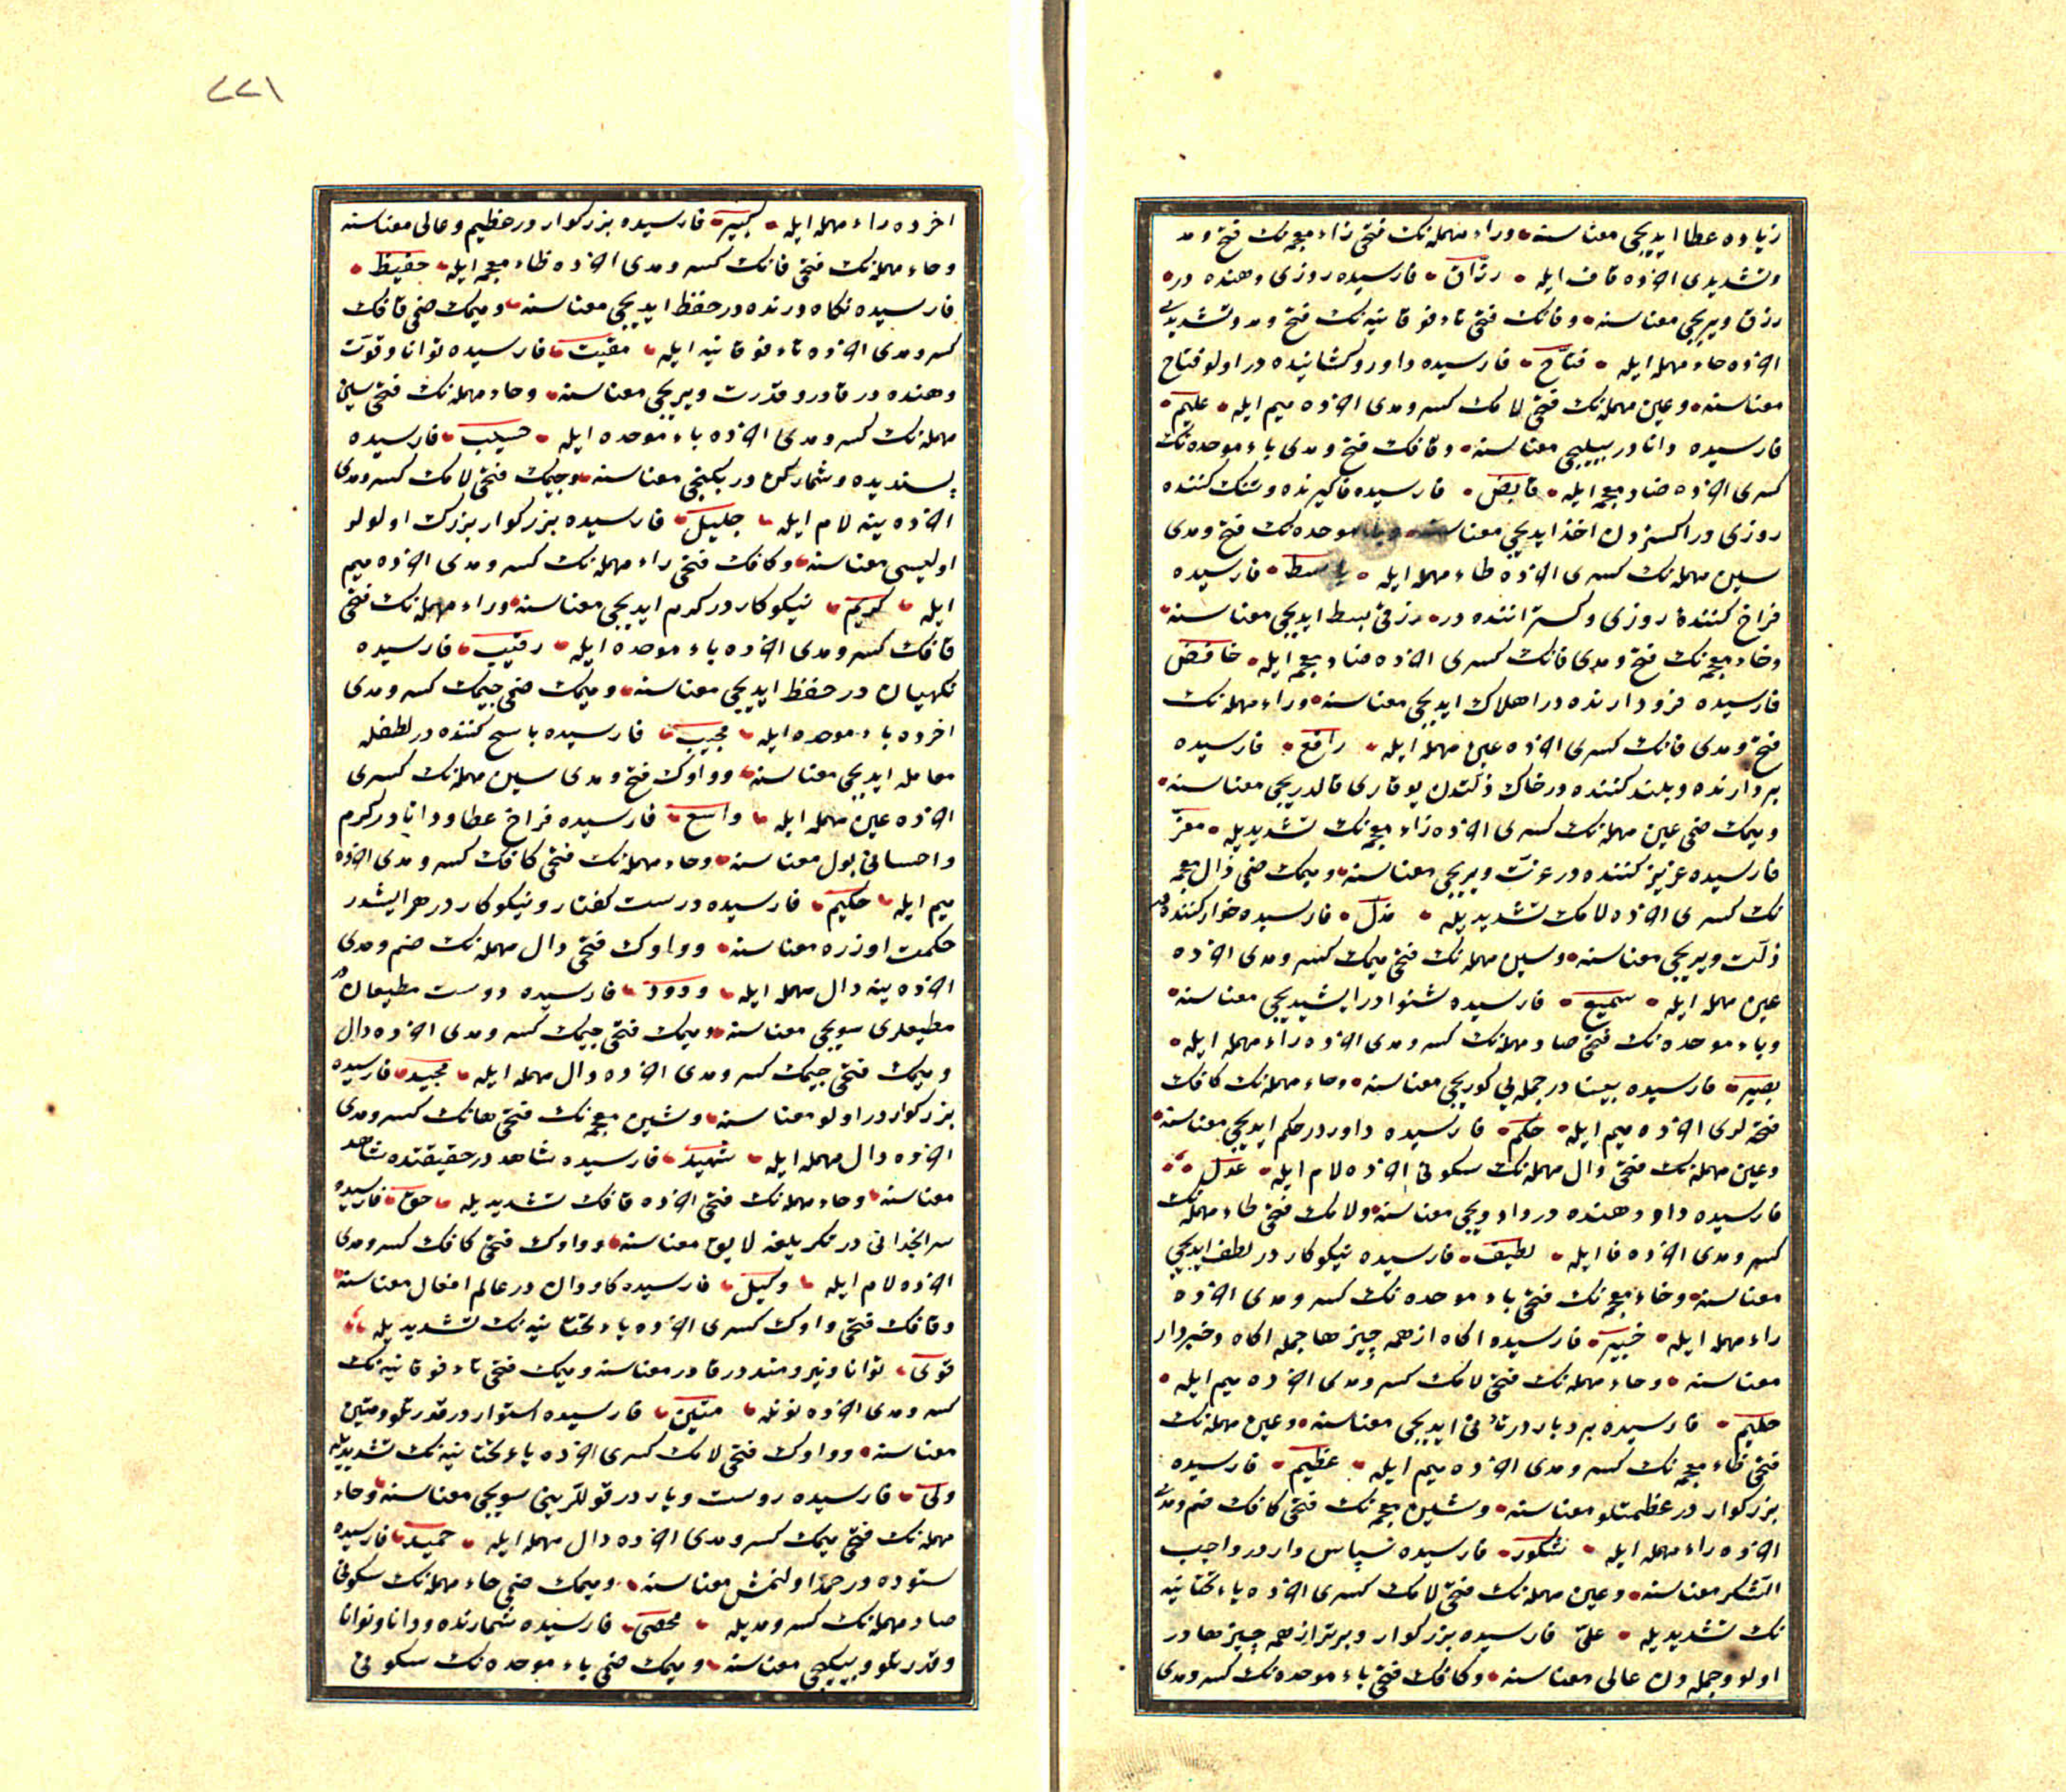 زیاده عطا ایدیجی معناسنه وراء مهمله‌نك فتحی زاء معجمه‌نك فتح و مد
وتشدیدی اخرده قاف ایله رزّاق فارسیده روزی دهنده در
رزق ویریجی معناسنه وفانك فتحی تاء فوقانیه‌نك فتح و مد وتشدیدی
اخرده حاء مهمله ایله فتّاح فارسیده داور وکشاینده در اولو فتاح
معناسنه وعین مهمله‌نك فتحی لامك کسر ومدی اخرده میم ایله علیم
فارسیده دانا در بیلیجی معناسنه وقافك فتح ومدی باء موحده‌نك
کسری اخرده ضاد معجمه ایله قابض فارسیده فاکیرنده وتنك کننده
روزی در اکسزدن اخذ ایدیجی معناسنه وباء موحده‌نك فتح ومدی
سین مهمله‌نك کسری اخرده طاء مهمله ایله باسط فارسیده
فراخ کنندۀ روزی وکستراننده در رزقی بسط ایدیجی معناسنه
وخاء معجمه‌نك فتح ومدی فانك کسری اخرده ضاد معجمه ایله خافض
فارسیده فرود ارنده در اهلاك ایدیجی معناسنه وراء مهمله‌نك
فتح ومدی فانك کسری اخرده عین مهمله ایله رافع فارسیده
بردارنده وبلند کننده در خاك ذلتدن یوقاری قالدریجی معناسنه
ومیمك ضمی عین مهمله‌نك کسری اخرده زاء معجمه‌نك تشدیدیله معزّ
فارسیده عزیز کننده در عزت ویریجی معناسنه ومیمك ضمی ذال معجمه
نك کسری اخرده لامك تشدیدیله مذل فارسیده خوار کننده در
ذلّت ویریجی معناسنه وسین مهمله‌نك فتحی میمك کسر ومدی اخرده
عین مهمله ایله سمیع فارسیده شنوا در ایشیدیجی معناسنه
وباء موحده‌نك فتحی صاد مهمله‌نك کسر ومدی اخرده راء مهمله ایله
بصیر فارسیده بینا در جمله‌یی کوریجی معناسنه وحاء مهمله‌نك کافك
فتحه‌لری اخرده میم ایله حکم فارسیده داور در حکم ایدیجی معناسنه
وعین مهمله‌نك فتحی دال مهمله‌نك سکونی اخرده لام ایله عدل
فارسیده داد دهنده در داد ویجی معناسنه ولامك فتحی طاء مهمله‌نك
کسر ومدی اخرده فا ایله لطیف فارسیده نیکوکار در لطف ایدیجی
معناسنه وخاء معجمه‌نك فتحی باء موحده‌نك کسر ومدی اخرده
راء مهمله ایله خبیر فارسیده اکاه از همه چیزها جمله اکاه وخبردار
معناسنه وحاء مهمله‌نك فتحی لامك کسر ومدی اخرده میم ایله
حلیم فارسیده بردبار در تأنی ایدیجی معناسنه وعین مهمله‌نك
فتحی ظاء معجمه‌نك کسر ومدی اخرده میم ایله عظیم فارسیده
بزرکوار در عظمتلو معناسنه وشین معجمه‌نك فتحی کافك ضم ومدی
اخرده راء مهمله ایله شکور فارسیده سپاس دار در واجب
التشکر معناسنه وعین مهمله‌نك فتحی لامك کسری اخرده یاء تحتانیه
نك تشدیدیله علیّ فارسیده بزرکوار وبرتر از همه چیزها در
اولو وجمله‌دن عالی معناسنه وکافك فتحی باء موحده‌نك کسر ومدی
٢٢١
اخرده راء مهمله ایله کبیر فارسیده بزرکوار در عظیم وعالی معناسنه
وحاء مهمله‌نك فتحی فانك کسر ومدی اخرده ظاء معجمه ایله حفیظ
فارسیده نکاه دارنده در حفظ ایدیجی معناسنه ومیمك ضمی قافك
کسر ومدی اخرده تاء فوقانیه ایله مقیت فارسیده توانا وقوّت
دهنده در قادر وقدرت ویریجی معناسنه وحاء مهمله‌نك فتحی سین
مهمله‌نك کسر ومدی اخرده باء موحده ایله حسیب فارسیده
پسندیده وشمارکن در معناسنه وجیمك فتحی لامك کسر ومدی
اخرده ینه لام ایله جلیل فارسیده بزرکوار بزرك اولولو
اولیسی معناسنه وکافك فتحی راء مهمله‌نك کسر ومدی اخرده میم
ایله کریم نیکوکار در کرم ایدیجی معناسنه وراء مهمله‌نك فتحی
قافك کسر ومدی اخرده باء موحده ایله رقیب فارسیده
نکهبان در حفظ ایدیجی معناسنه ومیمك ضمی جیمك کسر ومدی
اخرده باء موحده ایله مجیب فارسیده پاسخ کننده در لطفله
معامله ایدیجی معناسنه وواوك فتح ومدی سین مهمله‌نك کسری
اخرده عین مهمله ایله واسع فارسیده فراخ عطا ودانا در کرم
واحسانی بول معناسنه وحاء مهمله‌نك فتحی کافك کسر ومدی اخرده
میم ایله حکیم فارسیده درست کفتار ونیکوکار در هر ایشدر
حکمت اوزره معناسنه وواوك فتحی دال مهمله‌نك ضم ومدی
اخرده ینه دال مهمله ایله ودود فارسیده دوست مطیعان در
مطیعلری سویجی معناسنه ومیمك فتحی جیمك کسر ومدی اخرده دال
ومیمك فتحی جیمك کسر ومدی اخرده دال مهمله ایله مجید فارسیده
بزرکوار در اولو معناسنه وشین معجمه‌نك فتحی هانك کسر ومدی
اخرده دال مهمله ایله شهید فارسیده شاهد در حقیقتده شاهد
معناسنه وحاء مهمله‌نك فتحی اخرده قافك تشدیدیله حقّ فارسیده
در تکریلغه لایق معناسنه وواوك فتحی کافك کسر ومدی
اخرده لام ایله وکیل فارسیده کار دان در عالم افعال معناسنه
وقافك فتحی واوك کسری اخرده یاء تحتانیه‌نك تشدیدیله
قوی توانا ونیرومند در قادر معناسنه ومیمك فتحی تاء فوقانیه‌نك
کسر ومدی اخرده نونله متین فارسیده استوار در قدرتلو ومتین
معناسنه وواوك فتحی لامك کسری اخرده یاء تحتانیه‌نك تشدیدیله
ولیّ فارسیده دوست ویار در قوللرینی سویجی معناسنه وحاء
مهمله‌نك فتحی میمك کسر ومدی اخرده دال مهمله ایله حمید فارسیده
ستوده در حمد اولنمش معناسنه ومیمك ضمی حاء مهمله‌نك سکونی
صاد مهمله‌نك کسر ومدیله محصی فارسیده شمارنده ودانا وتوانا
وقدرتلو وبیلیجی معناسنه ومیمك ضمی باء موحده‌نك سکونی